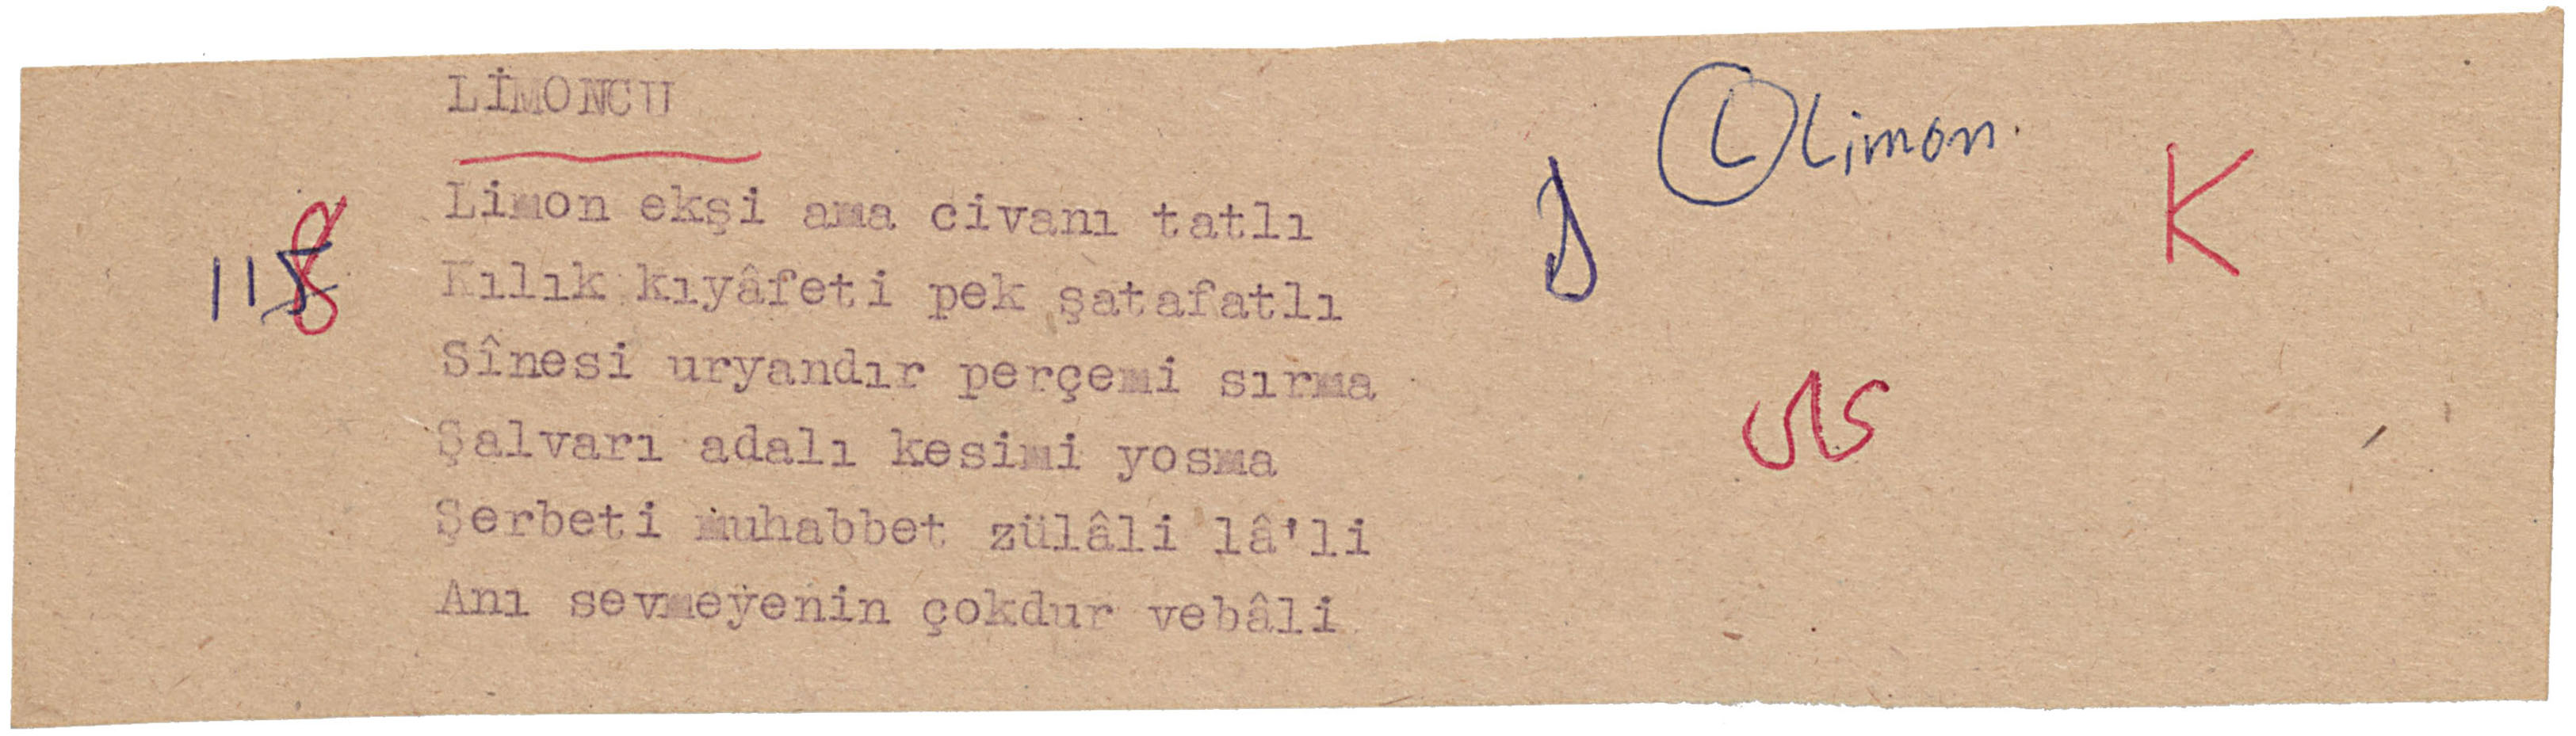 LİMONCU
L Limon.
K
Limon ekşi ama civanı tatlı
Kılık kıyâfeti pek şatafatlı
Sînesi uryandır perçemi sırma
Şalvarı adalı kesimi yosma
Şerbeti muhabbet zülâli lâ'li
Anı sevmeyenin çokdur vebâli